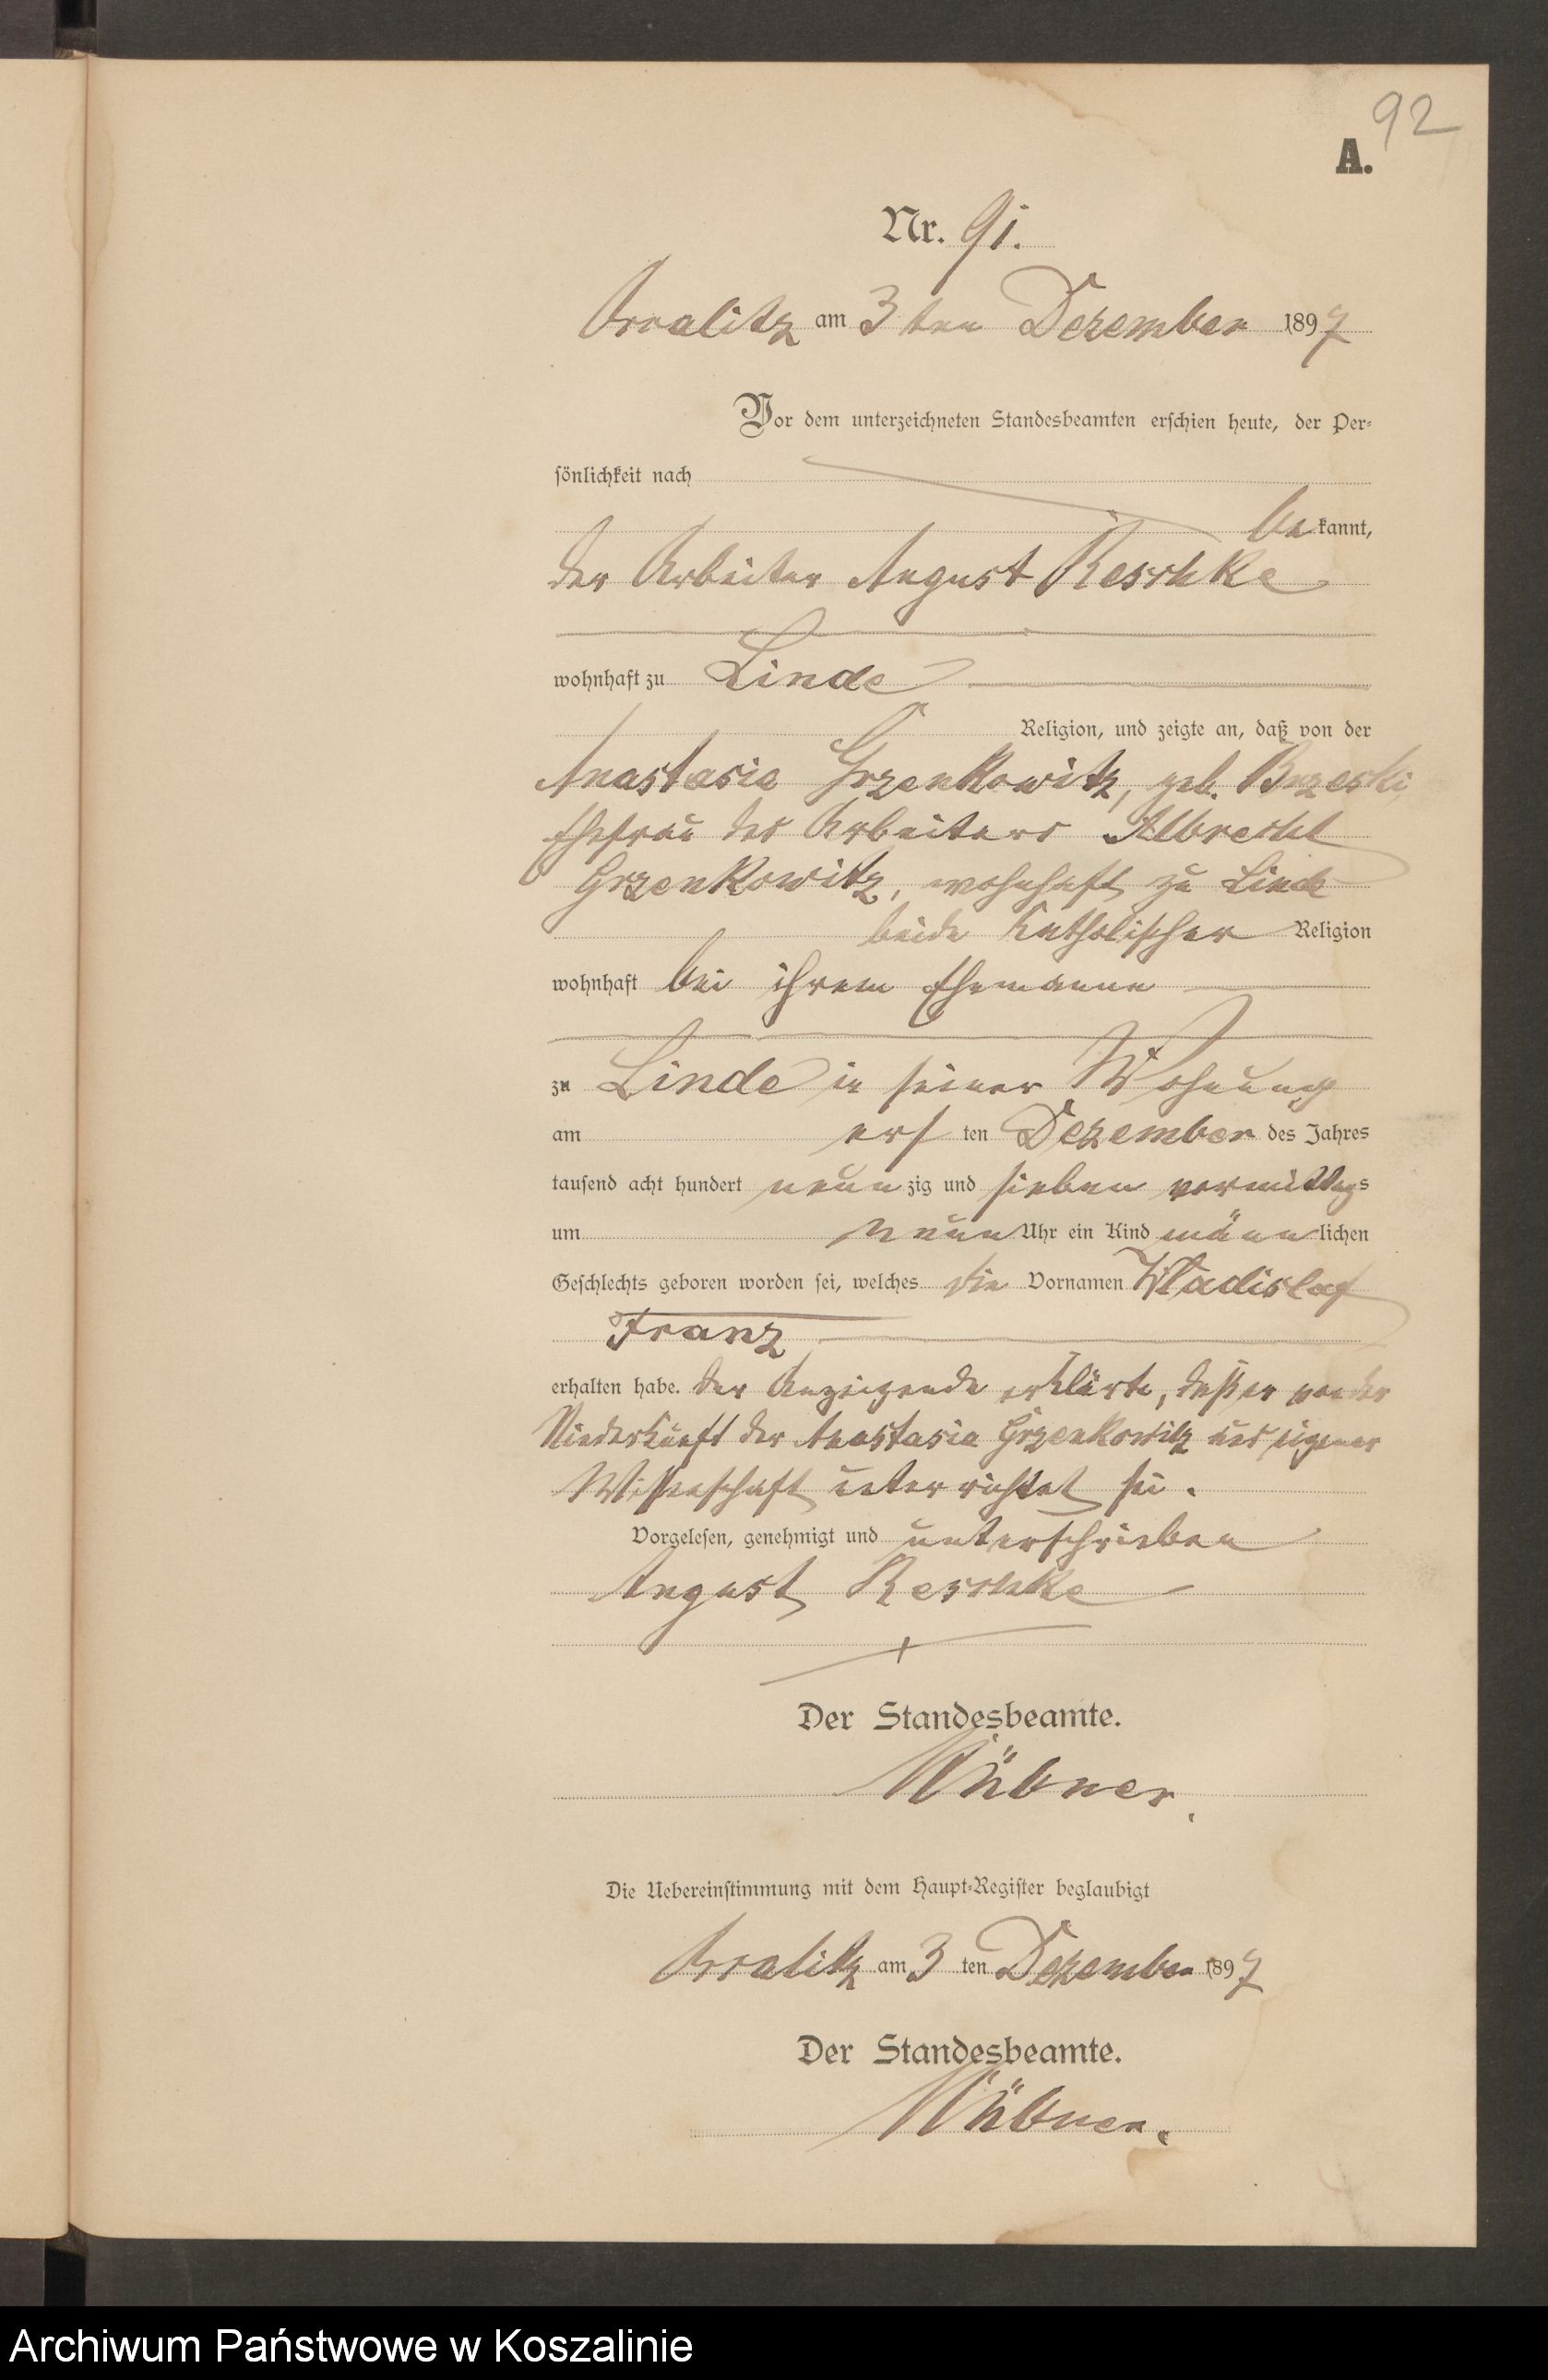 92
A.
Nr. 91.
am 3 ten Dezember 1897
Vor dem unterzeichneten Standesbeamten erschien heute, der Per-
sönlichkeit nach
bekannt,
der Arbeiter August Reschke
wohnhaft zu Linde
Religion, und zeigte an, daß von der
Anastasia Grzenkowitz, geb. Brzeski
Ehefrau des Arbeiters Albrecht
Grzenkowitz, wohnhaft zu Linde
beide katholischer Religion
wohnhaft bei ihrem Ehemanne
zu Linde in seiner Wohnung
am ersten Dezember des Jahres
tausend acht hundert neunzig und sieben vormittags
um neun Uhr ein Kind männlichen
Geschlechts geboren worden sei, welches die Vornamen Wladislaf
Franz
erhalten habe. Der Anzeigende erklärte, daß er von der
Niederkunft der Anastasia Grzenkowitz aus eigener
Wissenschaft unterrichtet sei.
Vorgelesen, genehmigt und unterschrieben
August Reschke
Der Standesbeamte.
Die Uebereinstimmung mit dem Haupt-Register beglaubigt
am 3 ten Dezember 1897
Der Standesbeamte.
Archiwum Państwowe w Koszalinie